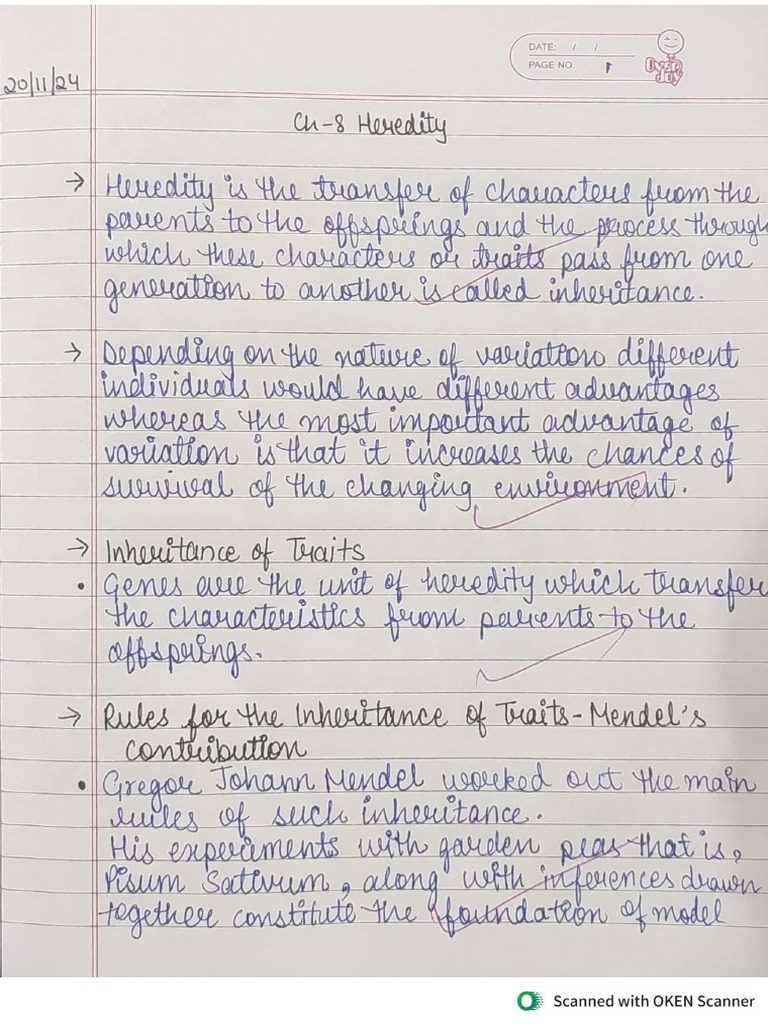 DATE: / /
PAGE NO. 1
OVER JOY
20/11/24
Ch-8 Heredity
→ Heredity is the transfer of characters from the
parents to the offsprings and the process through
which these characters or traits pass from one
generation to another is called inheritance.
→ Depending on the nature of variation different
individuals would have different advantages
whereas the most important advantage of
variation is that it increases the chances of
survival of the changing environment.
→ Inheritance of Traits
• Genes are the unit of heredity which transfer
the characteristics from parents to the
offsprings.
→ Rules for the Inheritance of Traits-Mendel's
contribution
• Gregor Johann Mendel worked out the main
rules of such inheritance.
His experiments with garden peas that is,
Pisum Sativum, along with inferences drawn
together constitute the foundation of model
Scanned with OKEN Scanner